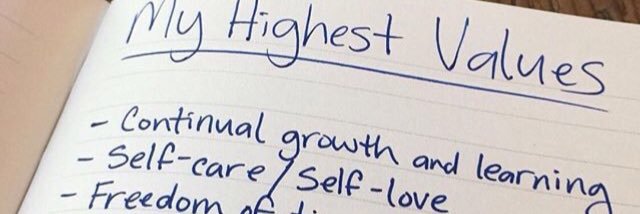 My Highest Values
- Continual growth and learning
- Self-care/Self-love
- Freedom of